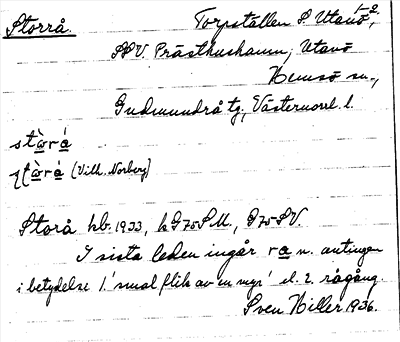 Storrå. Torpställen S. Utanö 1-2,
SSV. Prästhushamn, Utanö
Hemsö sn.,
Gudmundrå tg., Västernorrl. l.
stòrá
(Vilh. Norberg)
Storå hb. 1933, kG75SM., G75SV.
I sista leden ingår ra n. antingen
i betydelse 1. 'smal flik av en myr' el. 2. rågång.
Sven Hiller 1936.